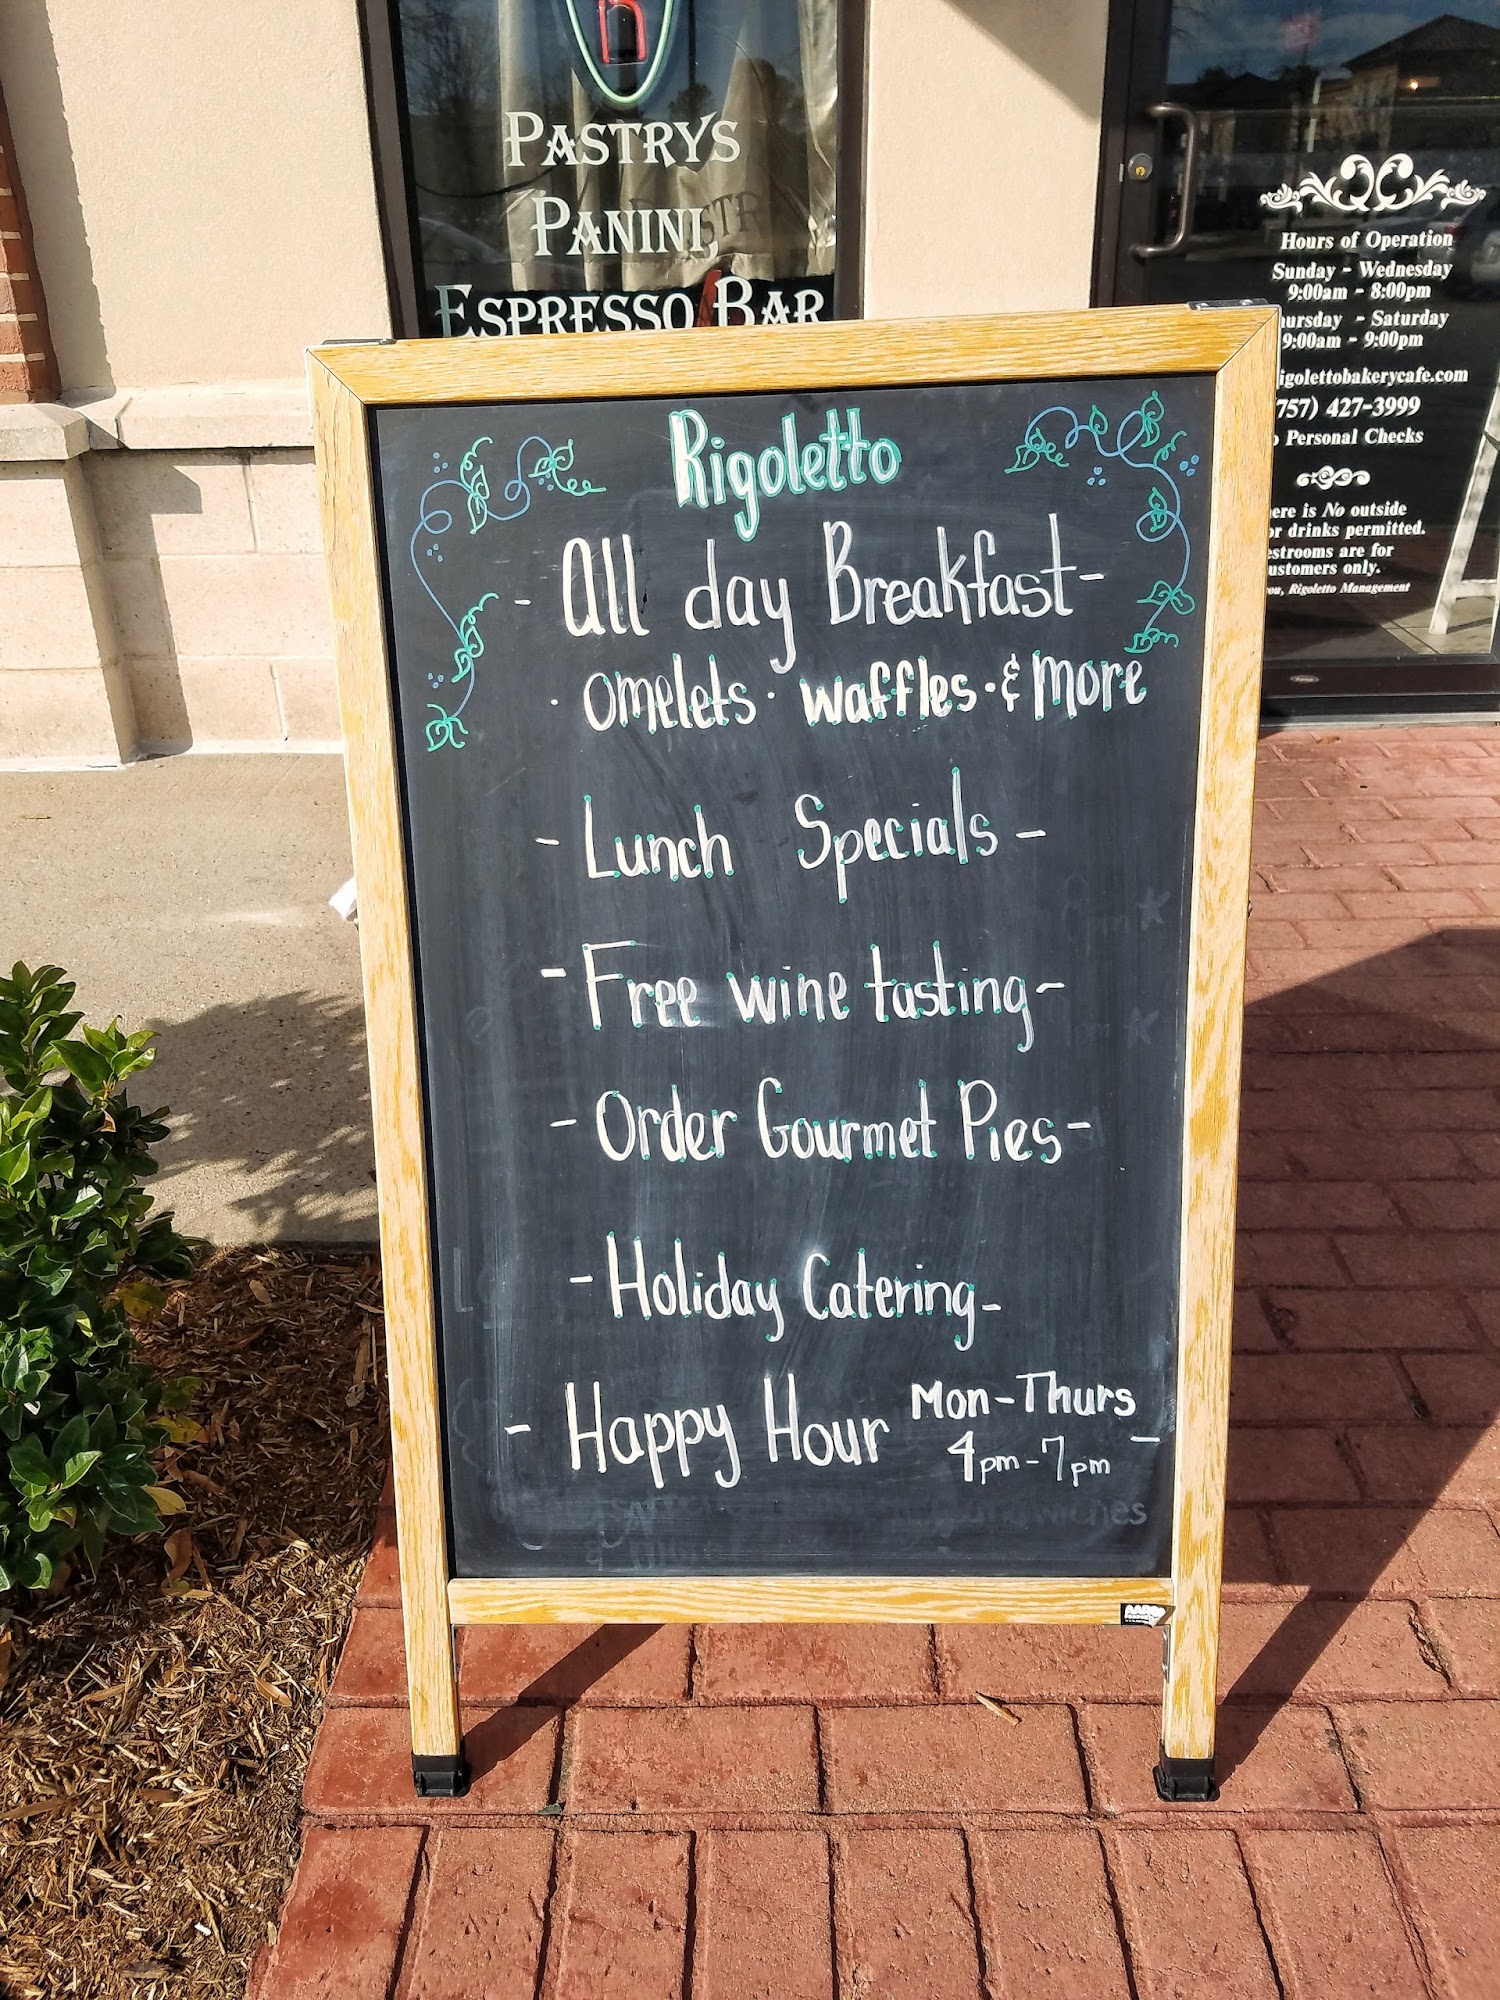 PASTRYS
PANINI,
ESPRESSO BAR
Hours of Operation
Sunday - Wednesday
9:00am - 8:00pm
- Saturday
9:00am - 9:00pm
igolettobakerycafe.com
757) 427-3999
Personal Checks
ere is No outside
or drinks permitted.
estrooms are for
ustomers only.
Rigoletto Management
Rigoletto
- All day Breakfast -
· omelets · waffles · & more
- Lunch Specials -
- Free wine tasting -
- Order Gourmet Pies -
- Holiday Catering -
- Happy Hour Mon-Thurs
4pm-7pm -